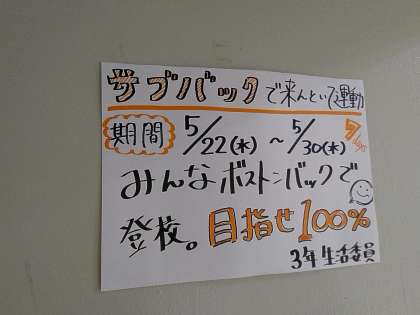 サブバックで来んといて運動
期間 5/22(水)~5/30(木) 7days
みんなボストンバックで
登校。目指せ100%
3年生活委員